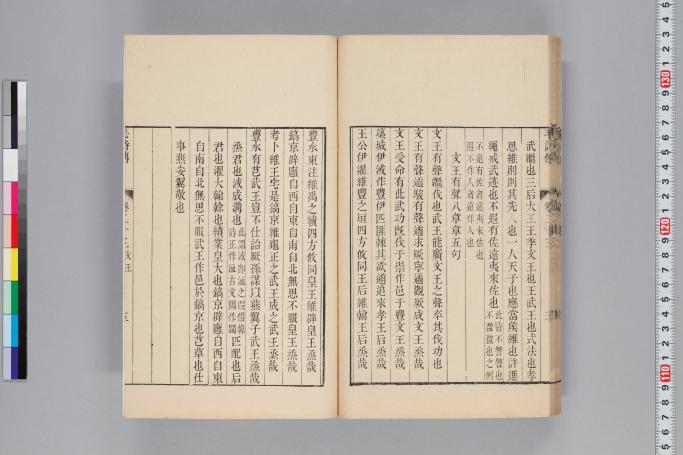 武繼也三后大王王季文王也王武王也式法也孝
思維則則其先人也一人天子也應當矦維也許進
繩戒武迹也不遐有佐遠夷來佐也
不遐有佐者遠夷來佐也
文王有聲八章章五句
文王有聲繼伐也武王能廣文王之聲卒其伐功也
文王有聲遹駿有聲遹求厥寧遹觀厥成文王烝哉
文王受命有此武功旣伐于崇作邑于豐文王烝哉
築城伊淢作豐伊匹匪棘其欲遹追來孝王后烝哉
王公伊濯維豐之垣四方攸同王后維翰王后烝哉
豐水東注維禹之績四方攸同皇王維辟皇王烝哉
鎬京辟廱自西自東自南自北無思不服皇王烝哉
考卜維王宅是鎬京維龜正之武王成之武王烝哉
豐水有芑武王豈不仕詒厥孫謀以燕翼子武王烝哉
烝君也淢成溝也
匹配也后
君也濯大翰榦也績業皇大也鎬京辟廱自西自東
自南自北無思不服武王作邑於鎬京也芑草也仕
事燕安翼敬也